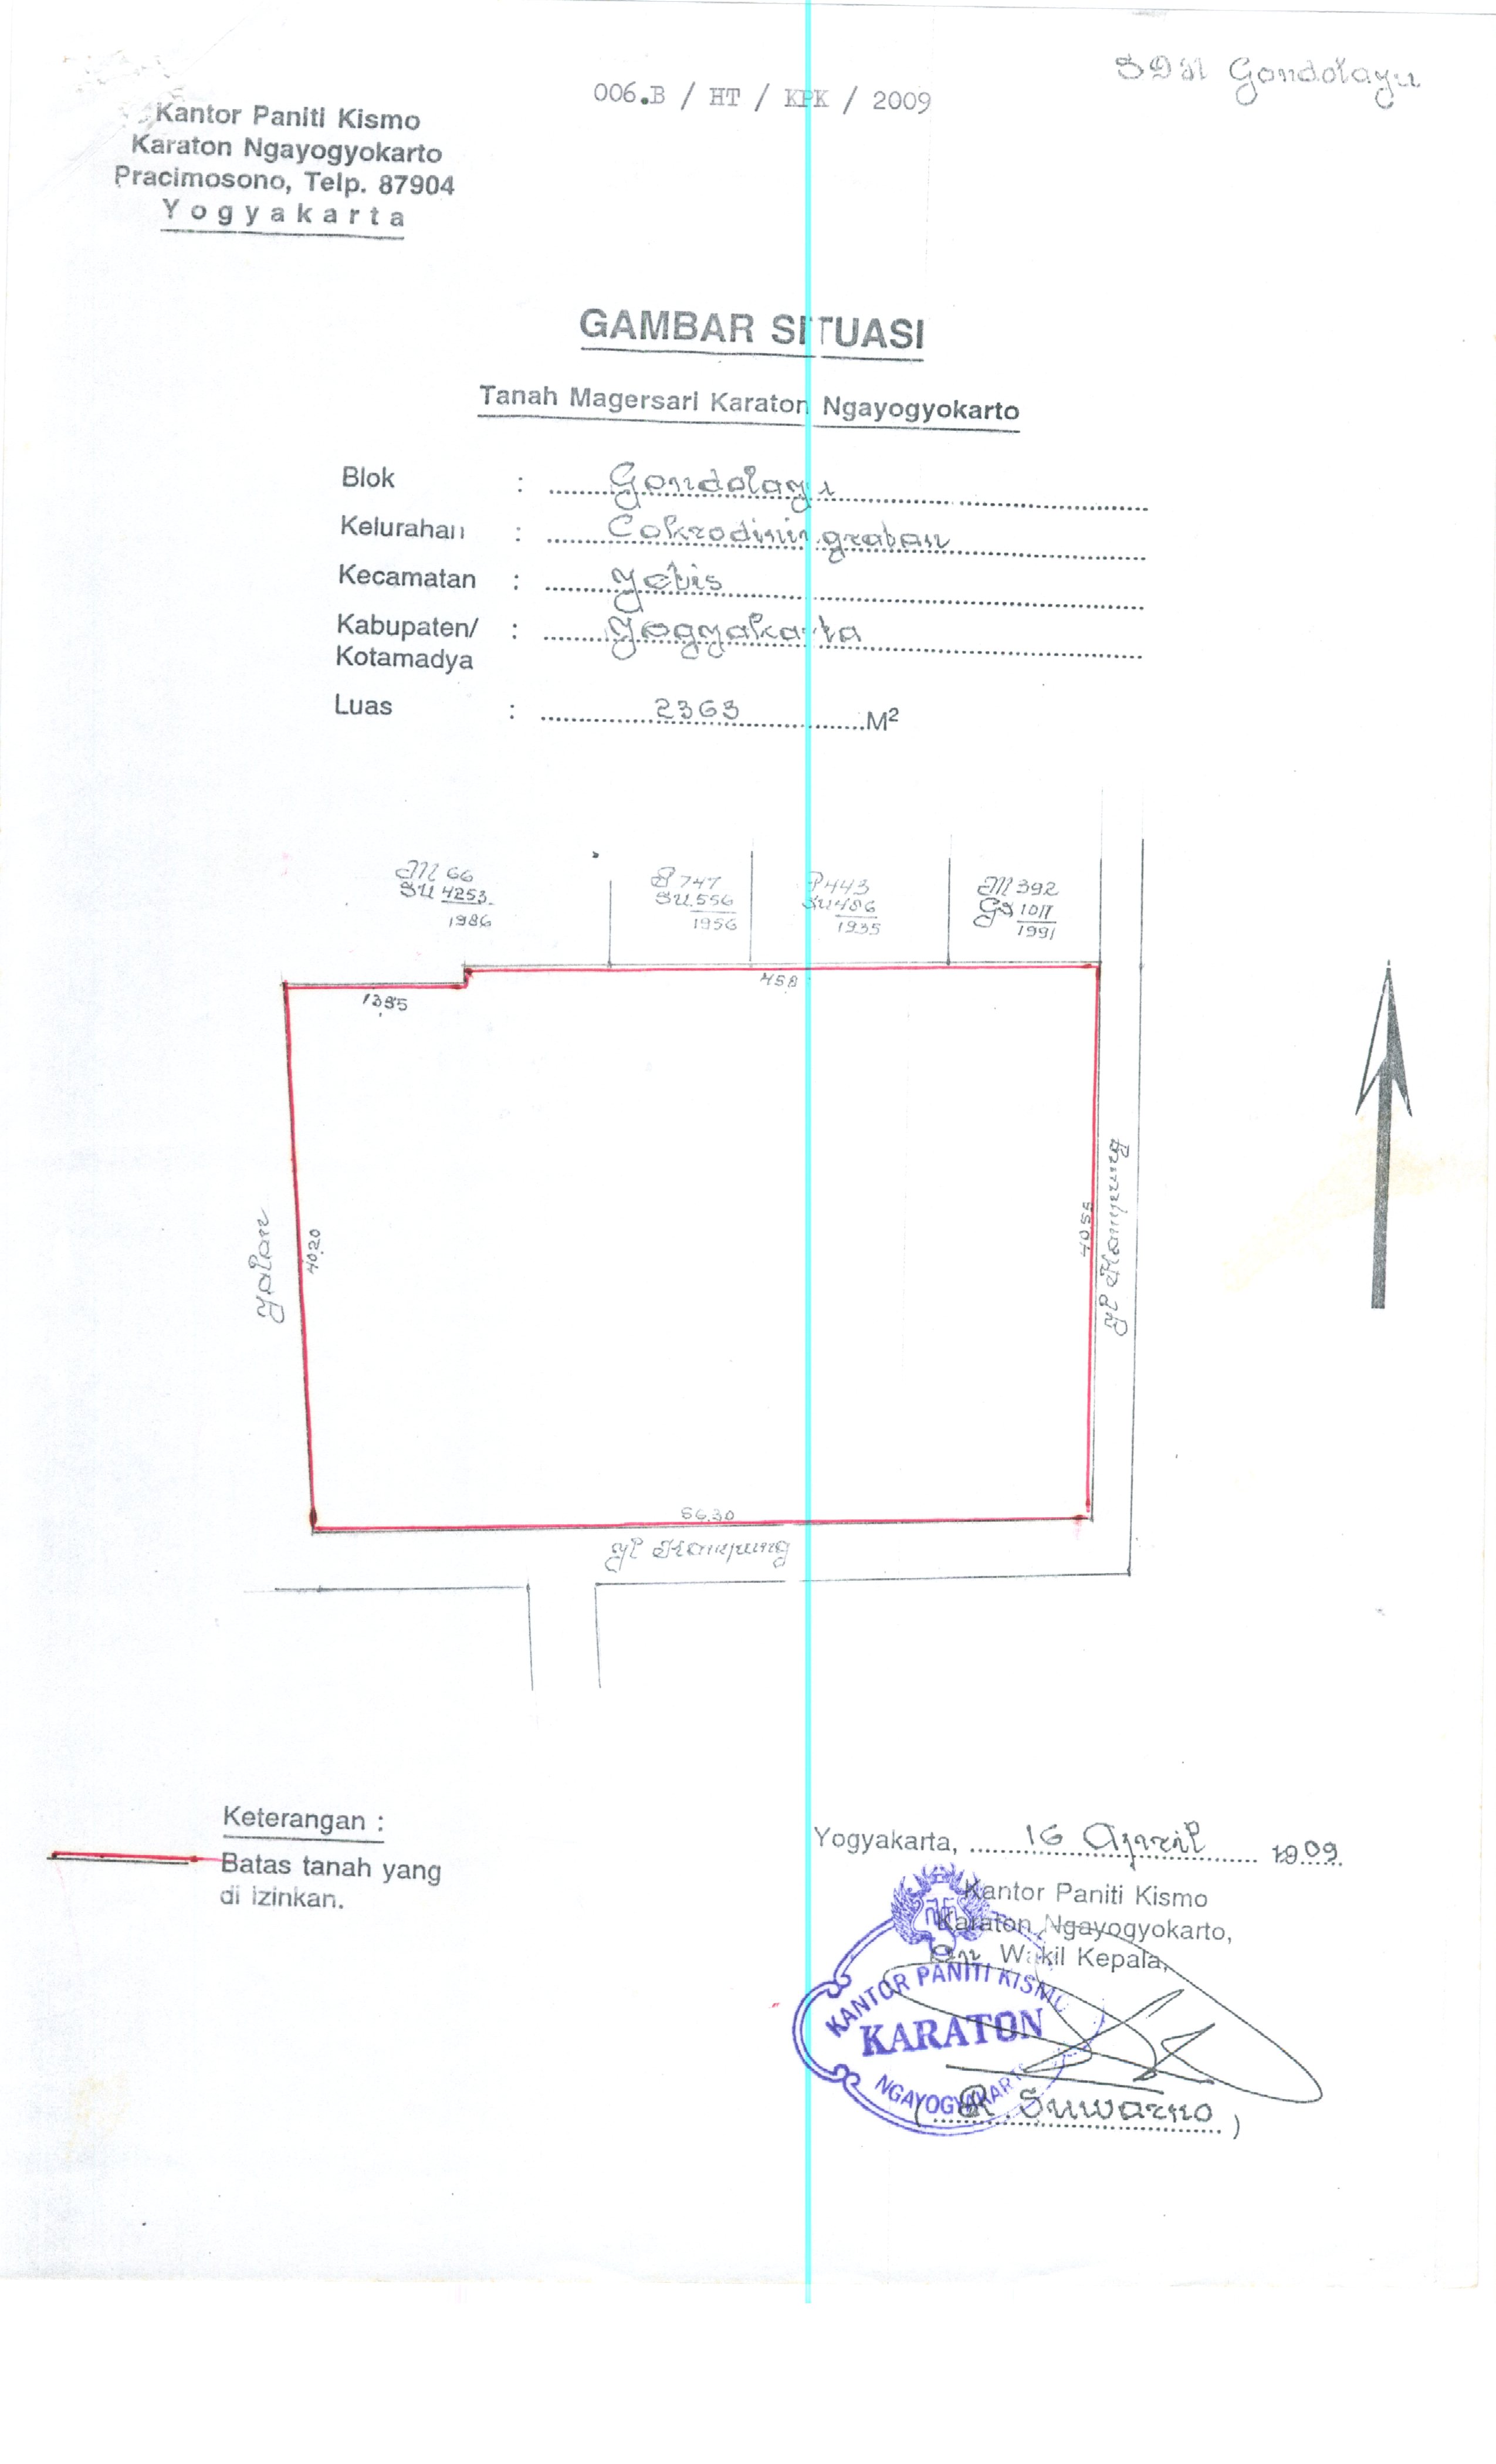 SDN Gondolayu
006.B / HT / KPK / 2009
Kantor Paniti Kismo
Karaton Ngayogyokarto
Pracimosono, Telp. 87904
Yogyakarta
GAMBAR SITUASI
Tanah Magersari Karaton Ngayogyokarto
Blok : Gondolayu
Kelurahan : Cokrodiningratan
Kecamatan : Jetis
Kabupaten/ : Yogyakarta
Kotamadya
Luas : 2363 M²
M 66
SU 4253
1986
747
SU.556
1956
P443
SU 486
1935
M 392
GS 1017
1991
1385
458
Jalan
4020
4055
Jl Kampung
56.30
Jl Kampung
Keterangan :
Batas tanah yang
di izinkan.
Yogyakarta, 16 April 2009.
Kantor Paniti Kismo
Karaton Ngayogyokarto,
Wakil Kepala,
KANTOR PANITI KISMO
KARATON
NGAYOGYAKARTA
( R. Suwarno )